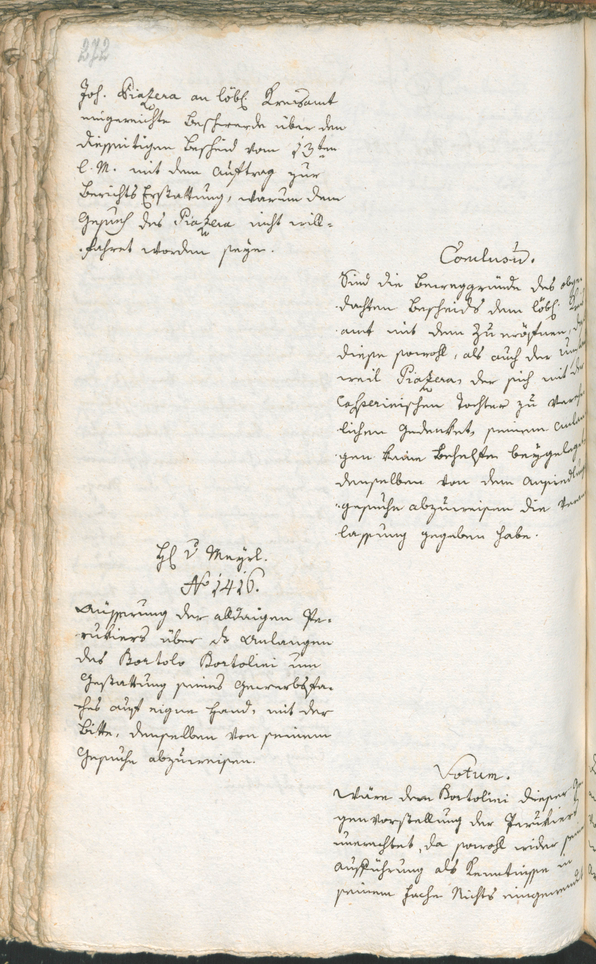 272
Joh. Piazera an löbl. Kreisamt
eingereichte Beschwerde über den
diesseitigen Bescheid vom 13ten
l. M. mit dem Auftrag zur
Berichts Erstattung, warum dem
Gesuch des Piazera nicht will-
fahret worden seye.
Conclusum.
Sind die Beweggründe des obge-
dachten Bescheids dem löbl.
amt mit dem zu eröfnen,
diese sowohl, als auch der
weil Piazera, der sich mit der
Tochter zu
lichen gedenket, seinem
gen keine Behelfe beygelegt
denselben von dem
gesuche abzuweisen die
lassung gegeben habe.
H v Mayrl.
No 1416.
Äusserung der alldaigen Pe-
rukiers über das Anlangen
des Bartolo Bartolini um
Gestattung seines Gewerbsfa-
ches auf eigne Hand, mit der
Bitte, denselben von seinem
Gesuche abzuweisen.
Votum.
Wäre dem Bartolini dieser
genvorstellung der Perukiers
unerachtet, da sowohl wider seine
Aufführung als Kenntnisse in
seinem Fache Nichts eingewendet